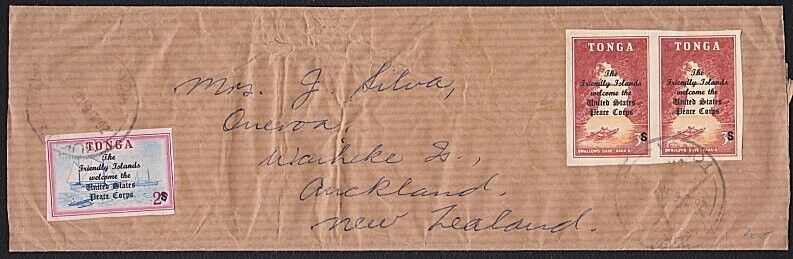 TONGA
The
Friendly Islands
welcome the
United States
Peace Corps
3S
SWALLOWS' CAVE · VAVA'U
TONGA
The
Friendly Islands
welcome the
United States
Peace Corps
3S
SWALLOWS' CAVE · VAVA'U
Mrs. J. Silva,
Oneroa,
Waiheke Is.,
Auckland,
New Zealand.
TONGA
The
Friendly Islands
welcome the
United States
Peace Corps
2S